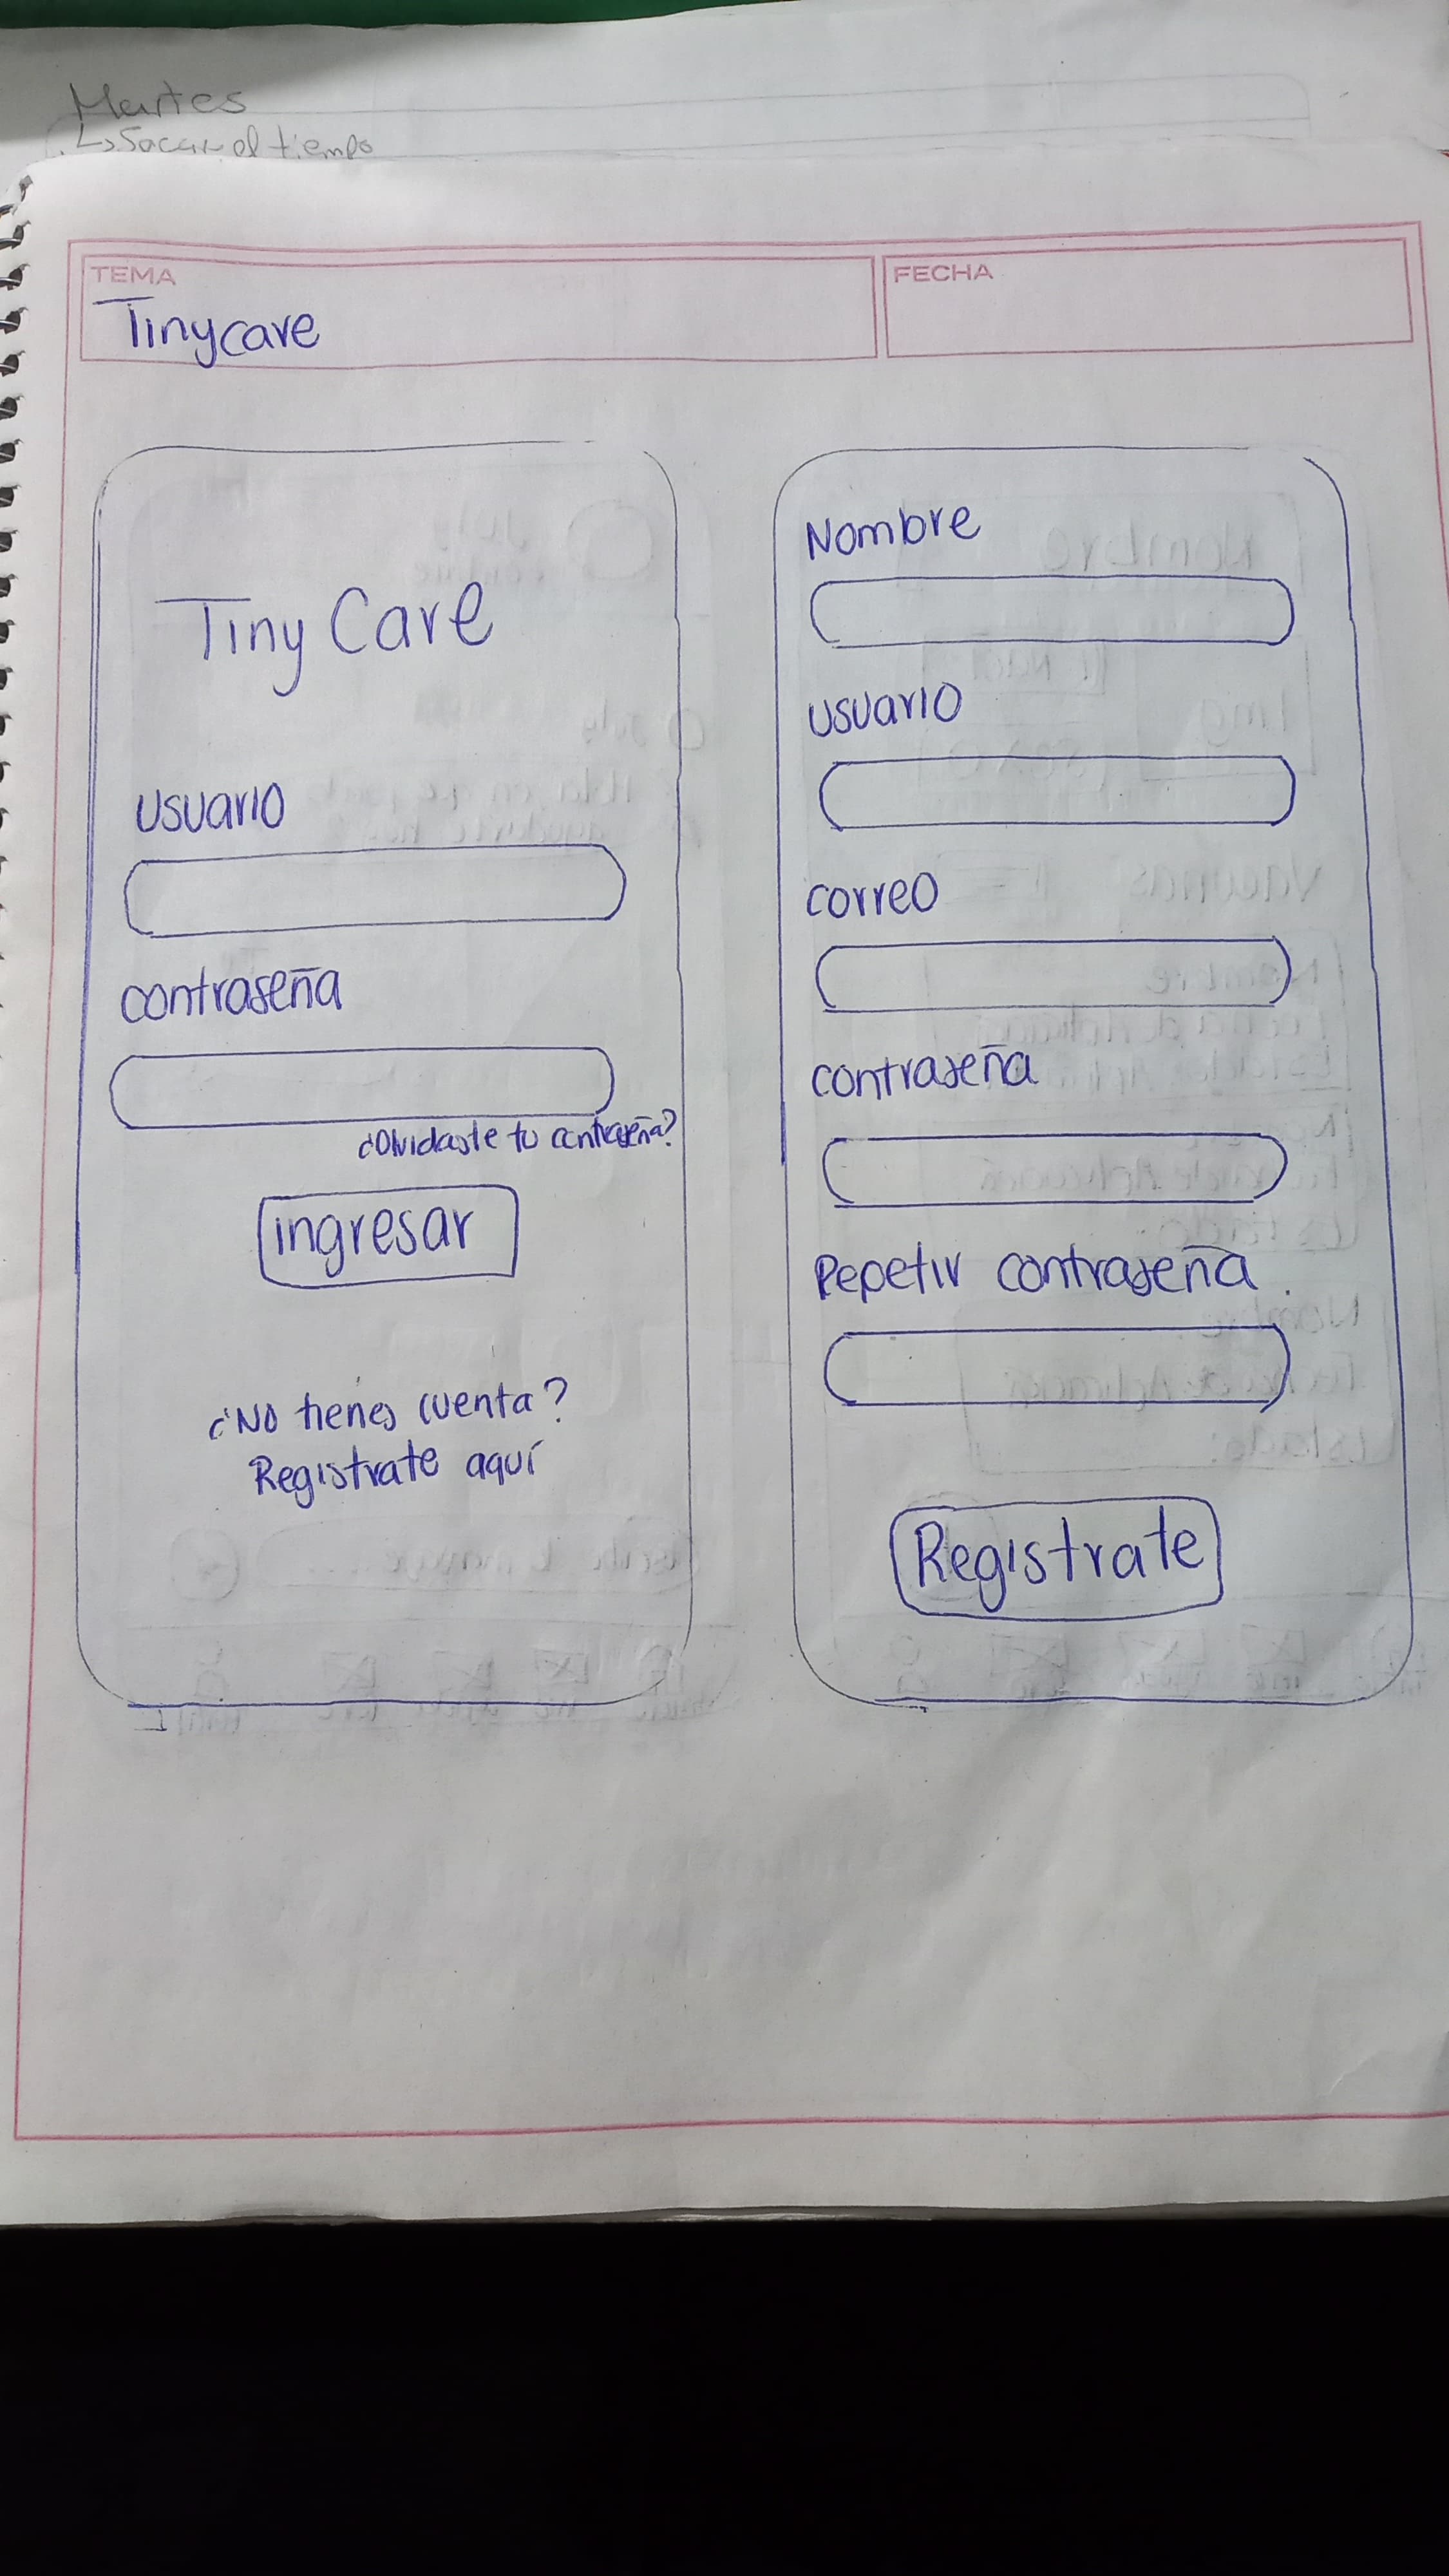 Martes
↳ Sacar el tiempo
TEMA
Tinycare
FECHA
Tiny Care
usuario
contraseña
¿Olvidaste tu contraseña?
ingresar
¿No tienes cuenta?
Registrate aquí
Nombre
usuario
correo
contraseña
Repetir contraseña
Registrate